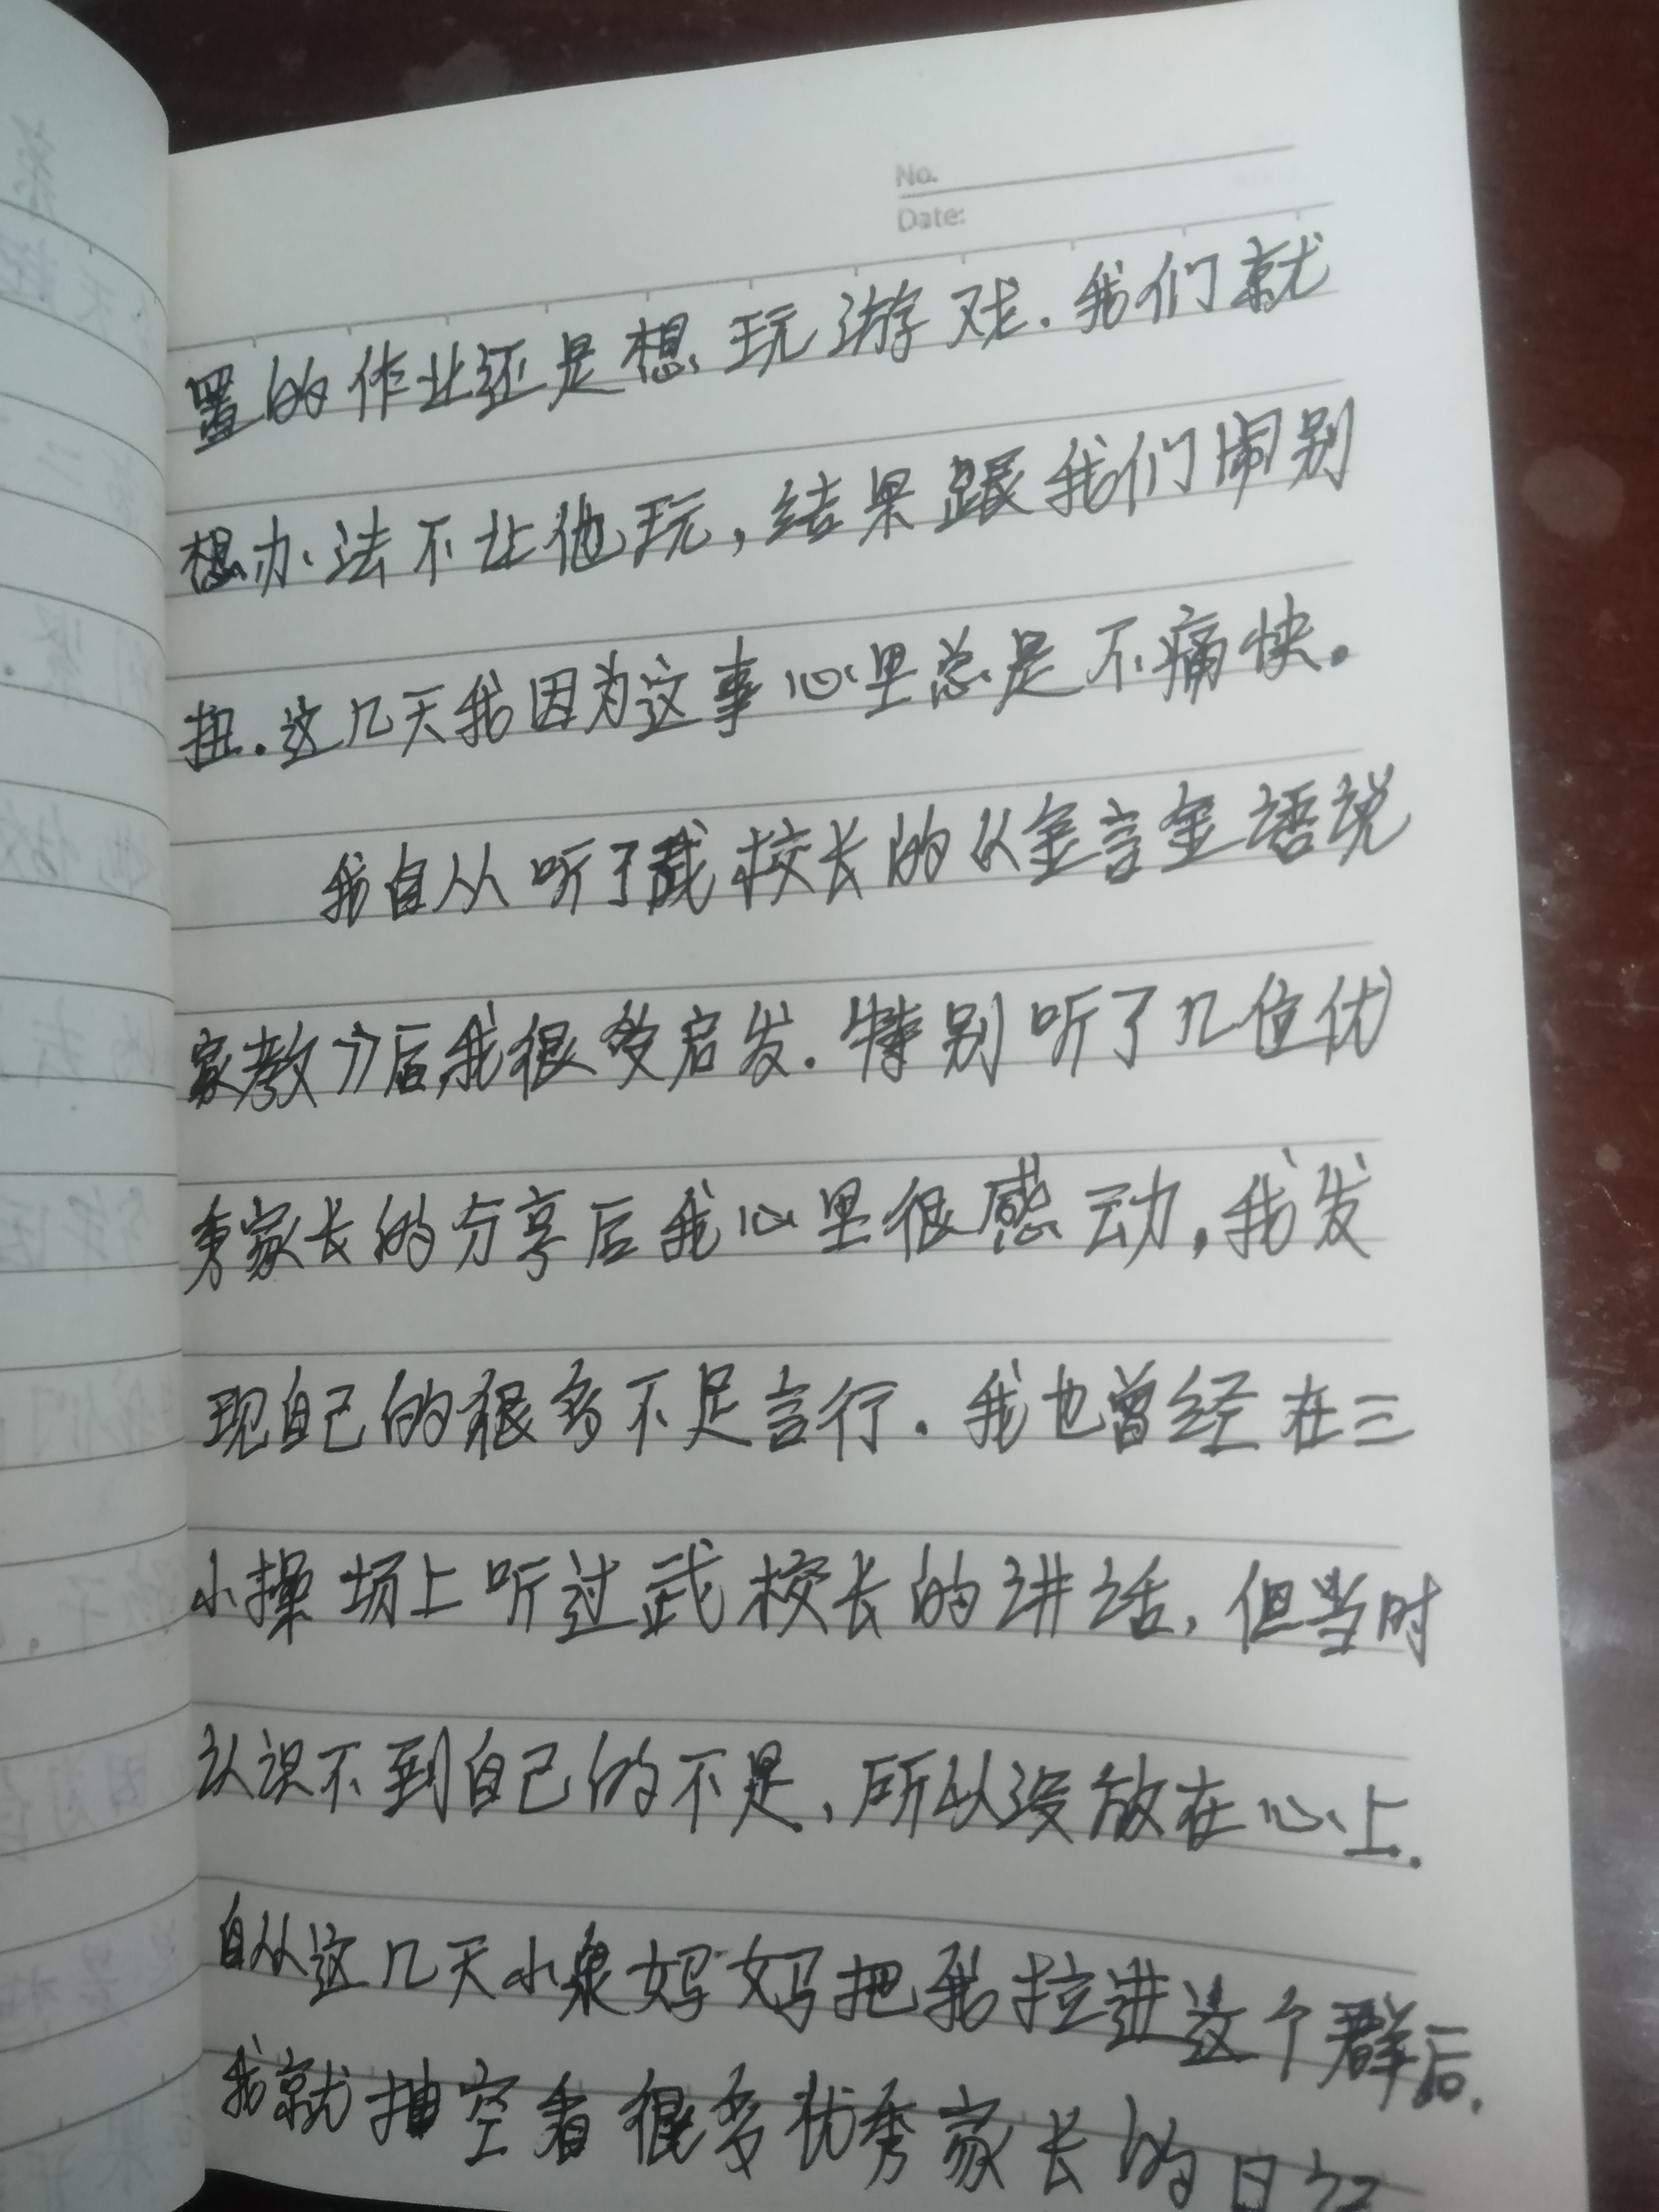 No.
Date:
置的作业还是想玩游戏.我们就
想办法不让他玩,结果跟我们闹别
扭.这几天我因为这事心里总是不痛快.
我自从听了武校长的《金言金语说
家教》后,我很受启发.特别听了几位优
秀家长的分享后我心里很感动,我发
现自己的很多不足言行.我也曾经在三
小操场上听过武校长的讲话,但当时
认识不到自己的不足,所以没放在心上.
自从这几天小泉妈妈把我拉进这个群后.
我就抽空看很多优秀家长的日记